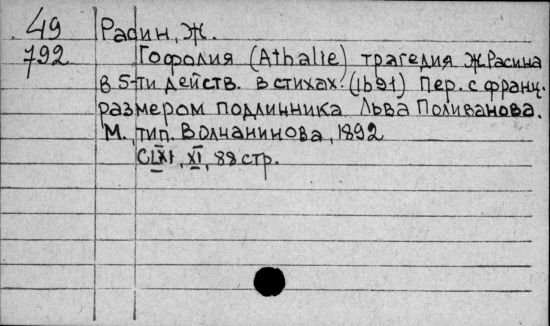 49 Расин, Ж.
792 Гофолия (Athalie) трагедия Ж Расина
в 5-ти действ. в стихах. (1691) Пер. с франц.
размером подлинника Льва Поливанова.
М., тип. Волчанинова, 1892
CLXI, XI, 88 стр.